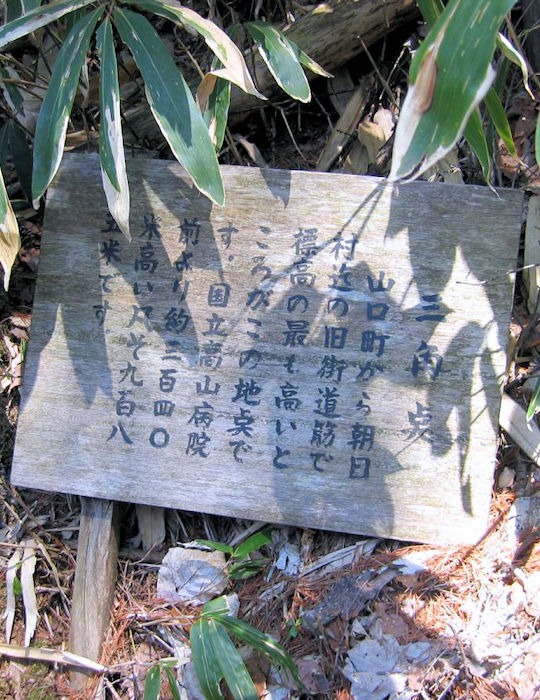 三角点
山口町から朝日
村迄の旧街道筋で
標高の最も高いと
ころがこの地点で
す。国立高山病院
前より約三百四〇
米高い凡そ九百八
五米です